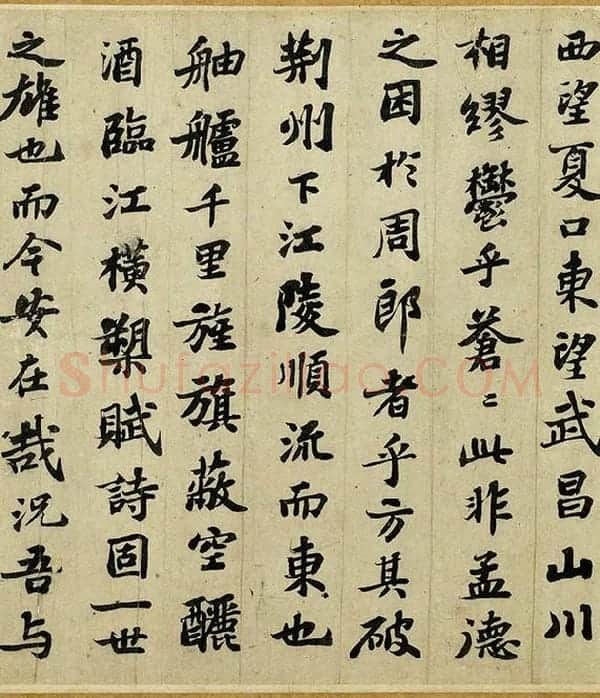 西望夏口東望武昌山川
相繆鬱乎蒼〻此非孟德
之困於周郎者乎方其破
荆州下江陵順流而東也
舳艫千里旌旗蔽空釃
酒臨江橫槊賦詩固一世
之雄也而今安在哉況吾与
Shufaziliao.COM